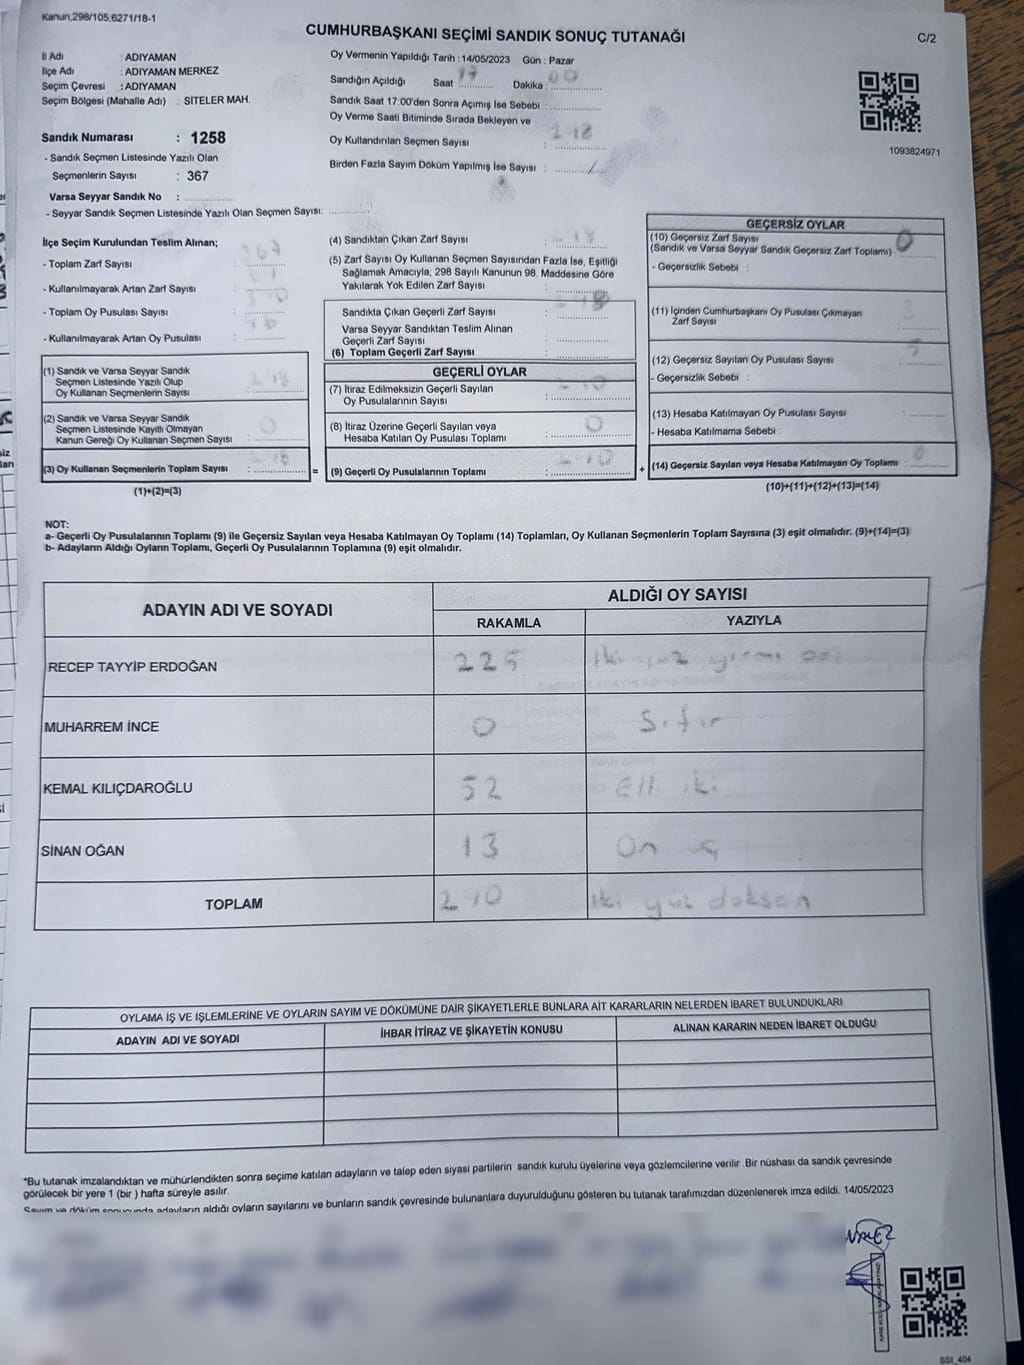 Kanun,298/105,6271/18-1
CUMHURBAŞKANI SEÇİMİ SANDIK SONUÇ TUTANAĞI
C/2
İl Adı : ADIYAMAN
İlçe Adı : ADIYAMAN MERKEZ
Seçim Çevresi : ADIYAMAN
Seçim Bölgesi (Mahalle Adı) : SİTELER MAH.
Sandık Numarası : 1258
- Sandık Seçmen Listesinde Yazılı Olan
Seçmenlerin Sayısı : 367
Varsa Seyyar Sandık No :
- Seyyar Sandık Seçmen Listesinde Yazılı Olan Seçmen Sayısı:
Oy Vermenin Yapıldığı Tarih : 14/05/2023 Gün : Pazar
Sandığın Açıldığı Saat 17 Dakika : 00
Sandık Saat 17:00'den Sonra Açımış İse Sebebi :
Oy Verme Saati Bitiminde Sırada Bekleyen ve
Oy Kullandırılan Seçmen Sayısı :
Birden Fazla Sayım Döküm Yapılmış İse Sayısı : /
1093824971
İlçe Seçim Kurulundan Teslim Alınan;
- Toplam Zarf Sayısı :
- Kullanılmayarak Artan Zarf Sayısı :
- Toplam Oy Pusulası Sayısı :
- Kullanılmayarak Artan Oy Pusulası :
(1) Sandık ve Varsa Seyyar Sandık
Seçmen Listesinde Yazılı Olup
Oy Kullanan Seçmenlerin Sayısı :
(2) Sandık ve Varsa Seyyar Sandık
Seçmen Listesinde Kayıtlı Olmayan
Kanun Gereği Oy Kullanan Seçmen Sayısı : 0
(3) Oy Kullanan Seçmenlerin Toplam Sayısı :
(1)+(2)=(3)
(4) Sandıktan Çıkan Zarf Sayısı :
(5) Zarf Sayısı Oy Kullanan Seçmen Sayısından Fazla İse, Eşitliği
Sağlamak Amacıyla; 298 Sayılı Kanunun 98. Maddesine Göre
Yakılarak Yok Edilen Zarf Sayısı :
Sandıkta Çıkan Geçerli Zarf Sayısı :
Varsa Seyyar Sandıktan Teslim Alınan
Geçerli Zarf Sayısı :
(6) Toplam Geçerli Zarf Sayısı :
GEÇERLİ OYLAR
(7) İtiraz Edilmeksizin Geçerli Sayılan
Oy Pusulalarının Sayısı :
(8) İtiraz Üzerine Geçerli Sayılan veya
Hesaba Katılan Oy Pusulası Toplamı : 0
= (9) Geçerli Oy Pusulalarının Toplamı :
GEÇERSİZ OYLAR
(10) Geçersiz Zarf Sayısı
(Sandık ve Varsa Seyyar Sandık Geçersiz Zarf Toplamı) : 0
- Geçersizlik Sebebi :
(11) İçinden Cumhurbaşkanı Oy Pusulası Çıkmayan
Zarf Sayısı :
(12) Geçersiz Sayılan Oy Pusulası Sayısı :
- Geçersizlik Sebebi :
(13) Hesaba Katılmayan Oy Pusulası Sayısı :
- Hesaba Katılmama Sebebi :
+ (14) Geçersiz Sayılan veya Hesaba Katılmayan Oy Toplamı :
(10)+(11)+(12)+(13)=(14)
NOT:
a- Geçerli Oy Pusulalarının Toplamı (9) ile Geçersiz Sayılan veya Hesaba Katılmayan Oy Toplamı (14) Toplamları, Oy Kullanan Seçmenlerin Toplam Sayısına (3) eşit olmalıdır. (9)+(14)=(3)
b- Adayların Aldığı Oyların Toplamı, Geçerli Oy Pusulalarının Toplamına (9) eşit olmalıdır.
ADAYIN ADI VE SOYADI
ALDIĞI OY SAYISI
RAKAMLA YAZIYLA
RECEP TAYYİP ERDOĞAN 225 İki yüz yirmi
MUHARREM İNCE 0 Sıfır
KEMAL KILIÇDAROĞLU 52 Elli iki
SİNAN OĞAN 13 On üç
TOPLAM 290 İki yüz doksan
OYLAMA İŞ VE İŞLEMLERİNE VE OYLARIN SAYIM VE DÖKÜMÜNE DAİR ŞİKAYETLERLE BUNLARA AİT KARARLARIN NELERDEN İBARET BULUNDUKLARI
ADAYIN ADI VE SOYADI İHBAR İTİRAZ VE ŞİKAYETİN KONUSU ALINAN KARARIN NEDEN İBARET OLDUĞU
*Bu tutanak imzalandıktan ve mühürlendikten sonra seçime katılan adayların ve talep eden siyasi partilerin sandık kurulu üyelerine veya gözlemcilerine verilir .Bir nüshası da sandık çevresinde
görülecek bir yere 1 (bir ) hafta süreyle asılır.
Sayım ve döküm sonucunda adayların aldığı oyların sayılarını ve bunların sandık çevresinde bulunanlara duyurulduğunu gösteren bu tutanak tarafımızdan düzenlenerek imza edildi. 14/05/2023
SSI_404